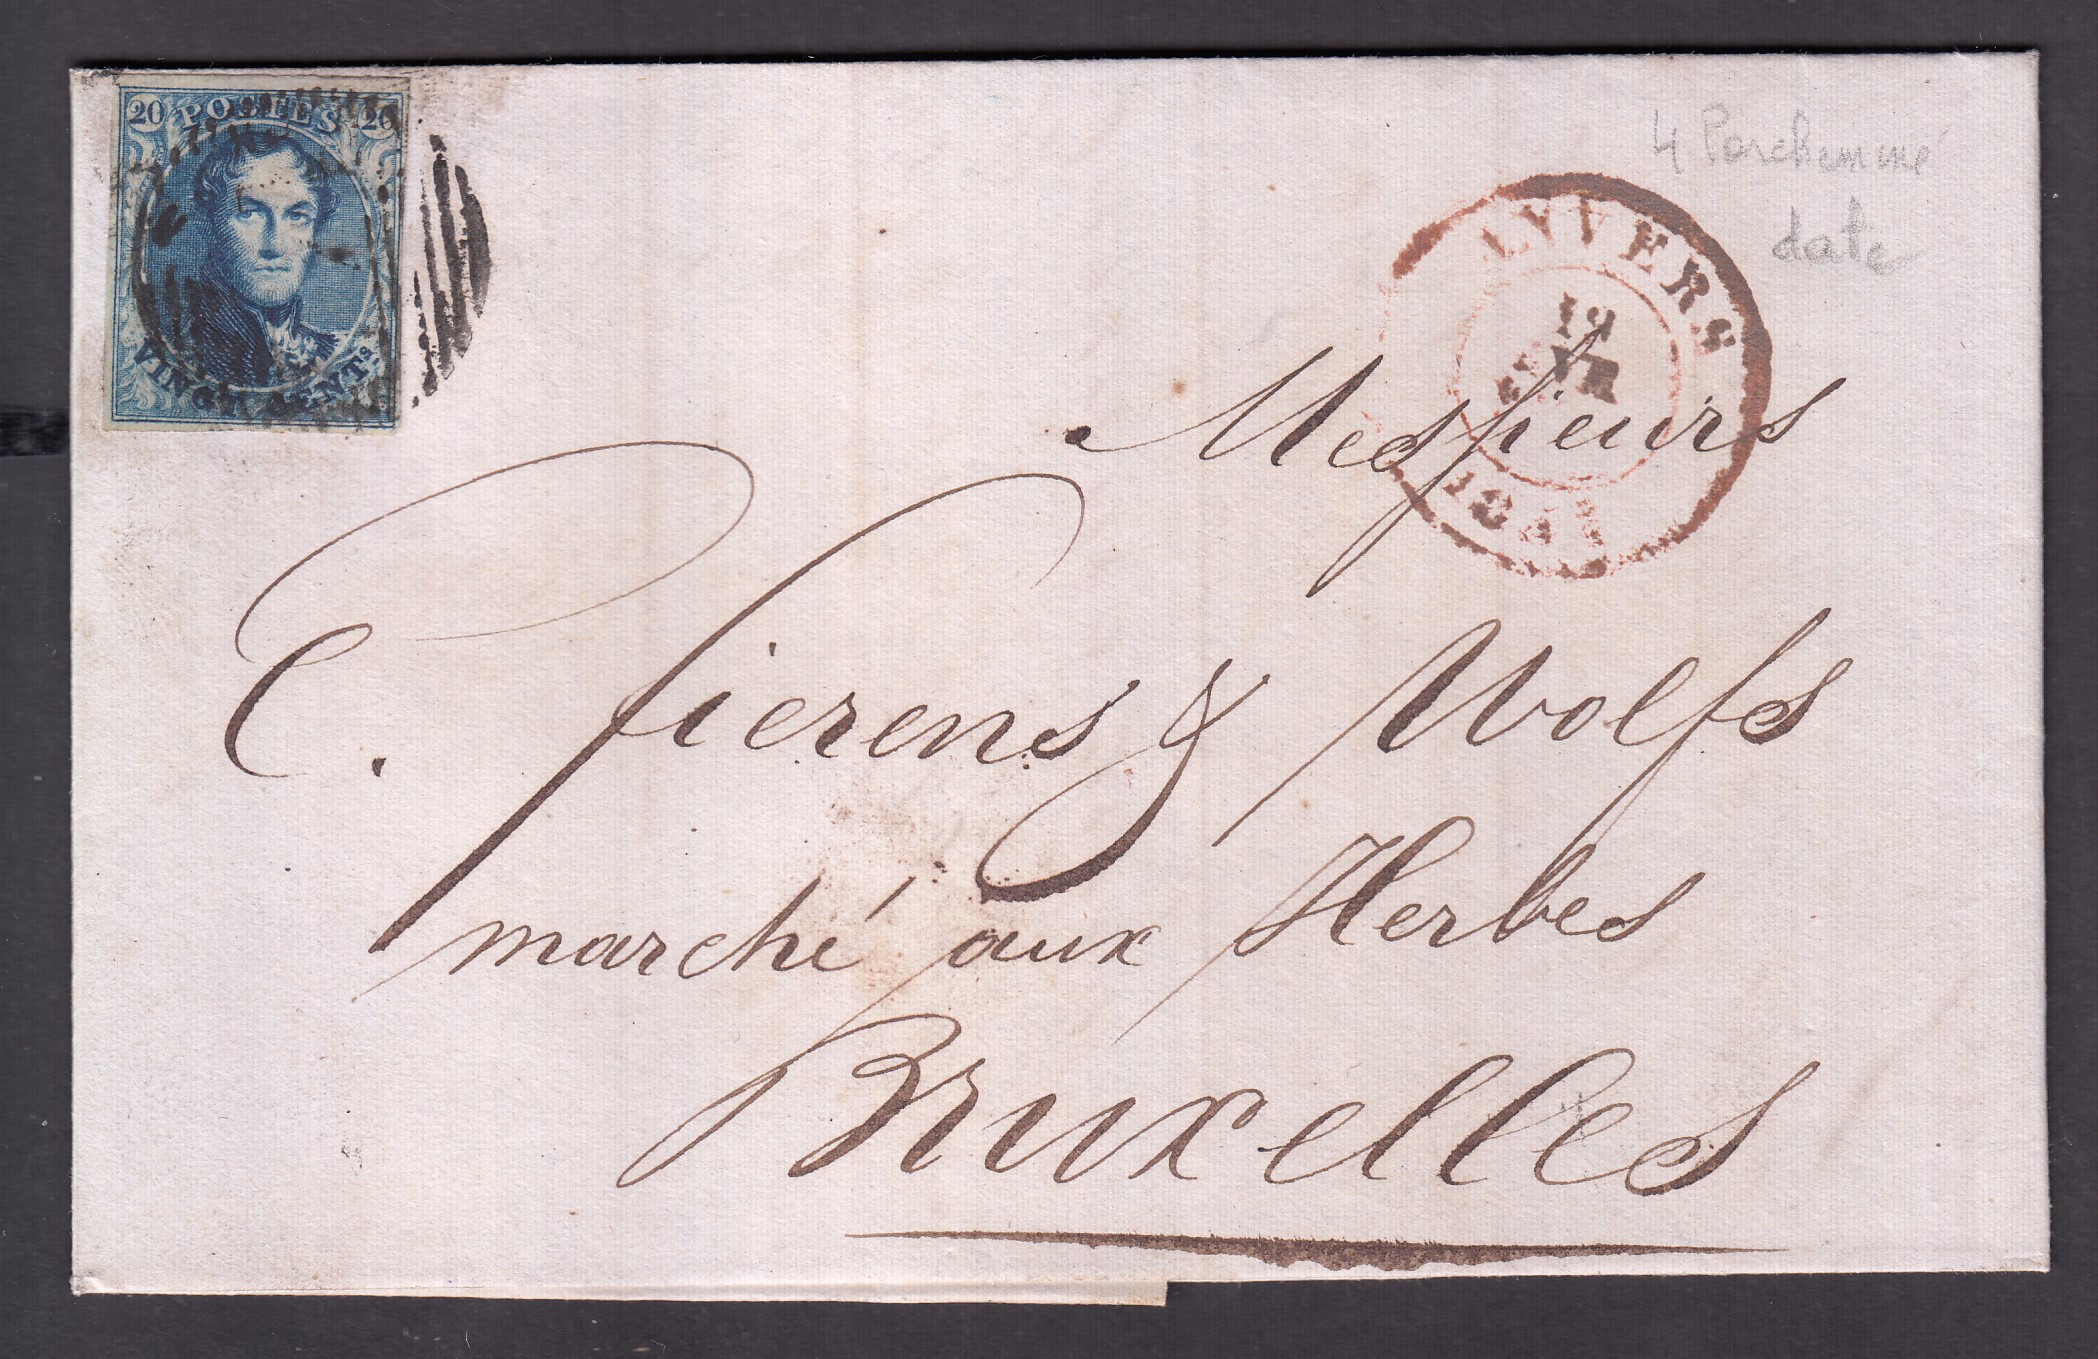 20 POSTES 20
VINGT CENTS.
4 Parchemine
date
ANVERS
19
Messieurs
C. Fierens & Wolfs
marché aux Herbes
Bruxelles